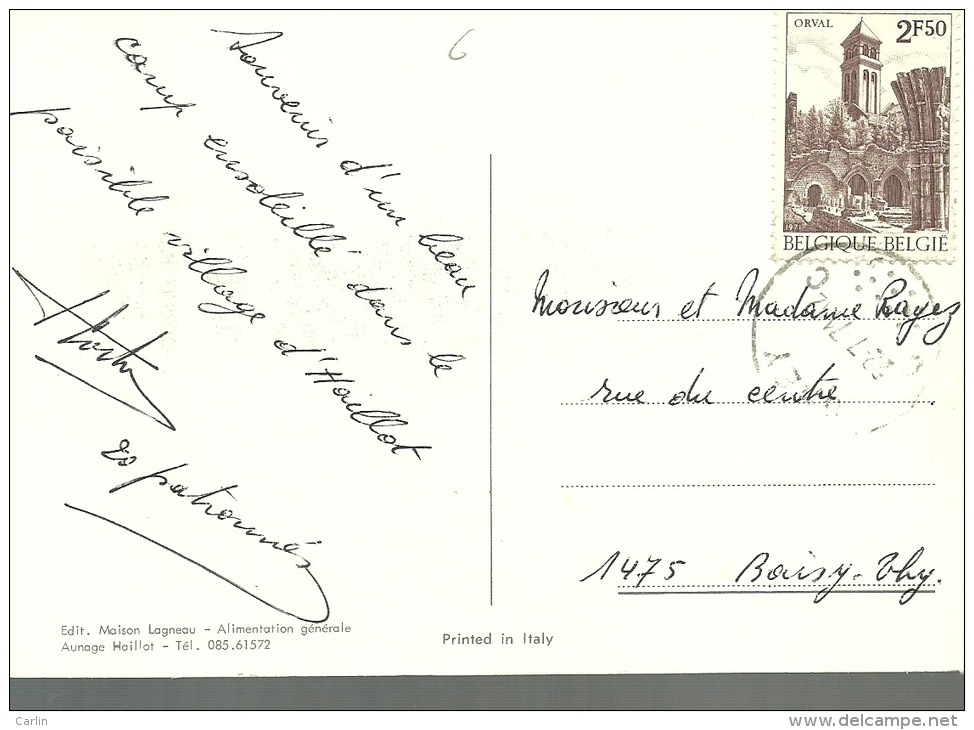 6
Souvenirs d'un beau
camp ensoleillé dans le
paisible village d'Haillot
patronnés
ORVAL
2F50
1971
BELGIQUE BELGIË
Monsieur et Madame Rayez
rue du centre
1475 Baisy-Thy.
Edit. Maison Lagneau - Alimentation générale
Aunage Haillot - Tél. 085.61572
Printed in Italy
Carlin
delcampe.net